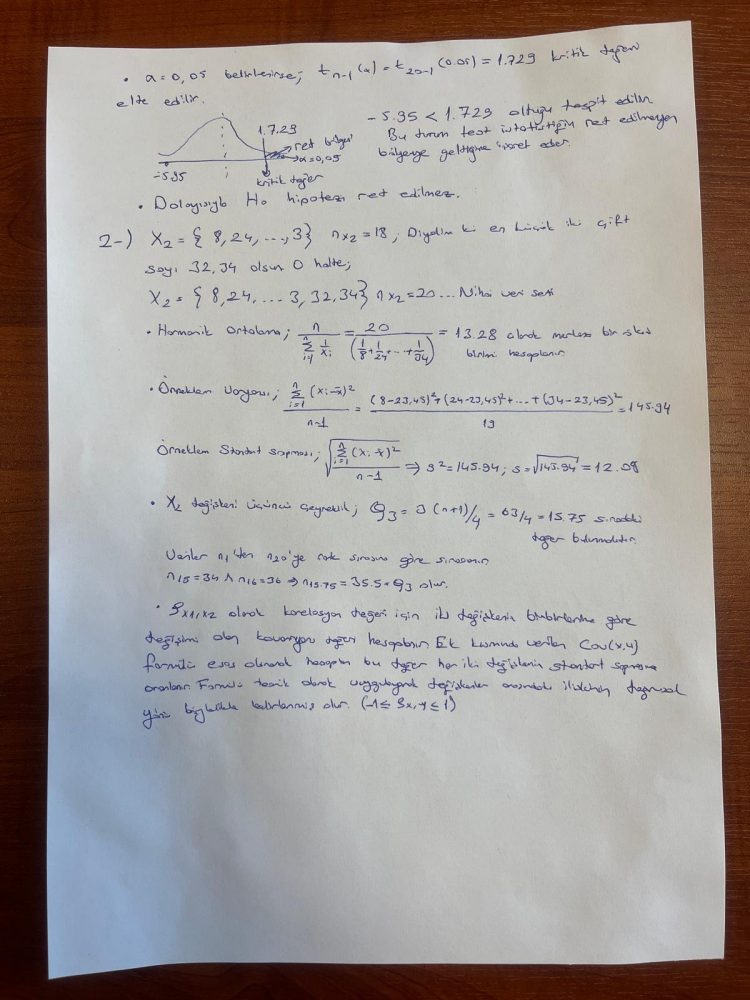 • α=0,05 belirlenirse; t n-1 (α) = t 20-1 (0.05) = 1.729 kritik değeri
elde edilir.
-5.95 < 1.729 olduğu tespit edilir
1.7.29
ret bölgesi
Bu durum test istatistiğin ret edilmeyen
α=0,05
bölgeye geldiğine işaret eder.
-5.95
kritik değer
• Dolayısıyla H₀ hipotezi ret edilmez.
2-) X₂ = { 8, 24, ..., 3} n x₂ = 18 ; Diyelim ki en küçük iki çift
sayı 32, 34 olsun O halde;
X₂ = { 8, 24, ... 3, 32, 34} n x₂ = 20 ... Nihai veri seti
• Harmonik Ortalama; n / Σ 1/xi = 20 / (1/8 + 1/24 + ... + 1/34) = 13.28 olarak merkezi bir
birimi hesaplanır.
• Örneklem Varyansı; Σ (xi-x̄)² / n-1 = (8-23,45)² + (24-23,45)² + ... + (34-23,45)² / 19 = 145.94
Örneklem Standart sapması; √ Σ (xi-x̄)² / n-1 ⇒ s² = 145.94; s = √145.94 = 12.08
• X₂ değişkeni üçüncü çeyreklik; Q₃ = 3 (n+1)/4 = 63/4 = 15.75 sıradaki
değer bulunmalıdır.
Veriler n₁'den n₂₀'ye sırasına göre sıralanır.
n₁₅ = 34 ∧ n₁₆ = 36 ⇒ n₁₅.₇₅ = 35.5 = Q₃ olur.
• ρ x1,x2 olarak korelasyon değeri için iki değişkenin birbirlerine göre
değişimi olan kovaryans değeri hesaplanır. Ek kısmında verilen Cov(x,y)
formülü esas alınarak hesaplanan bu değer her iki değişkenin standart sapmasına
oranlanır. Formül teknik olarak uygulayarak değişkenler arasındaki ilişkinin doğrusal
yönü belirlenmiş olur. (-1 ≤ ρx,y ≤ 1)